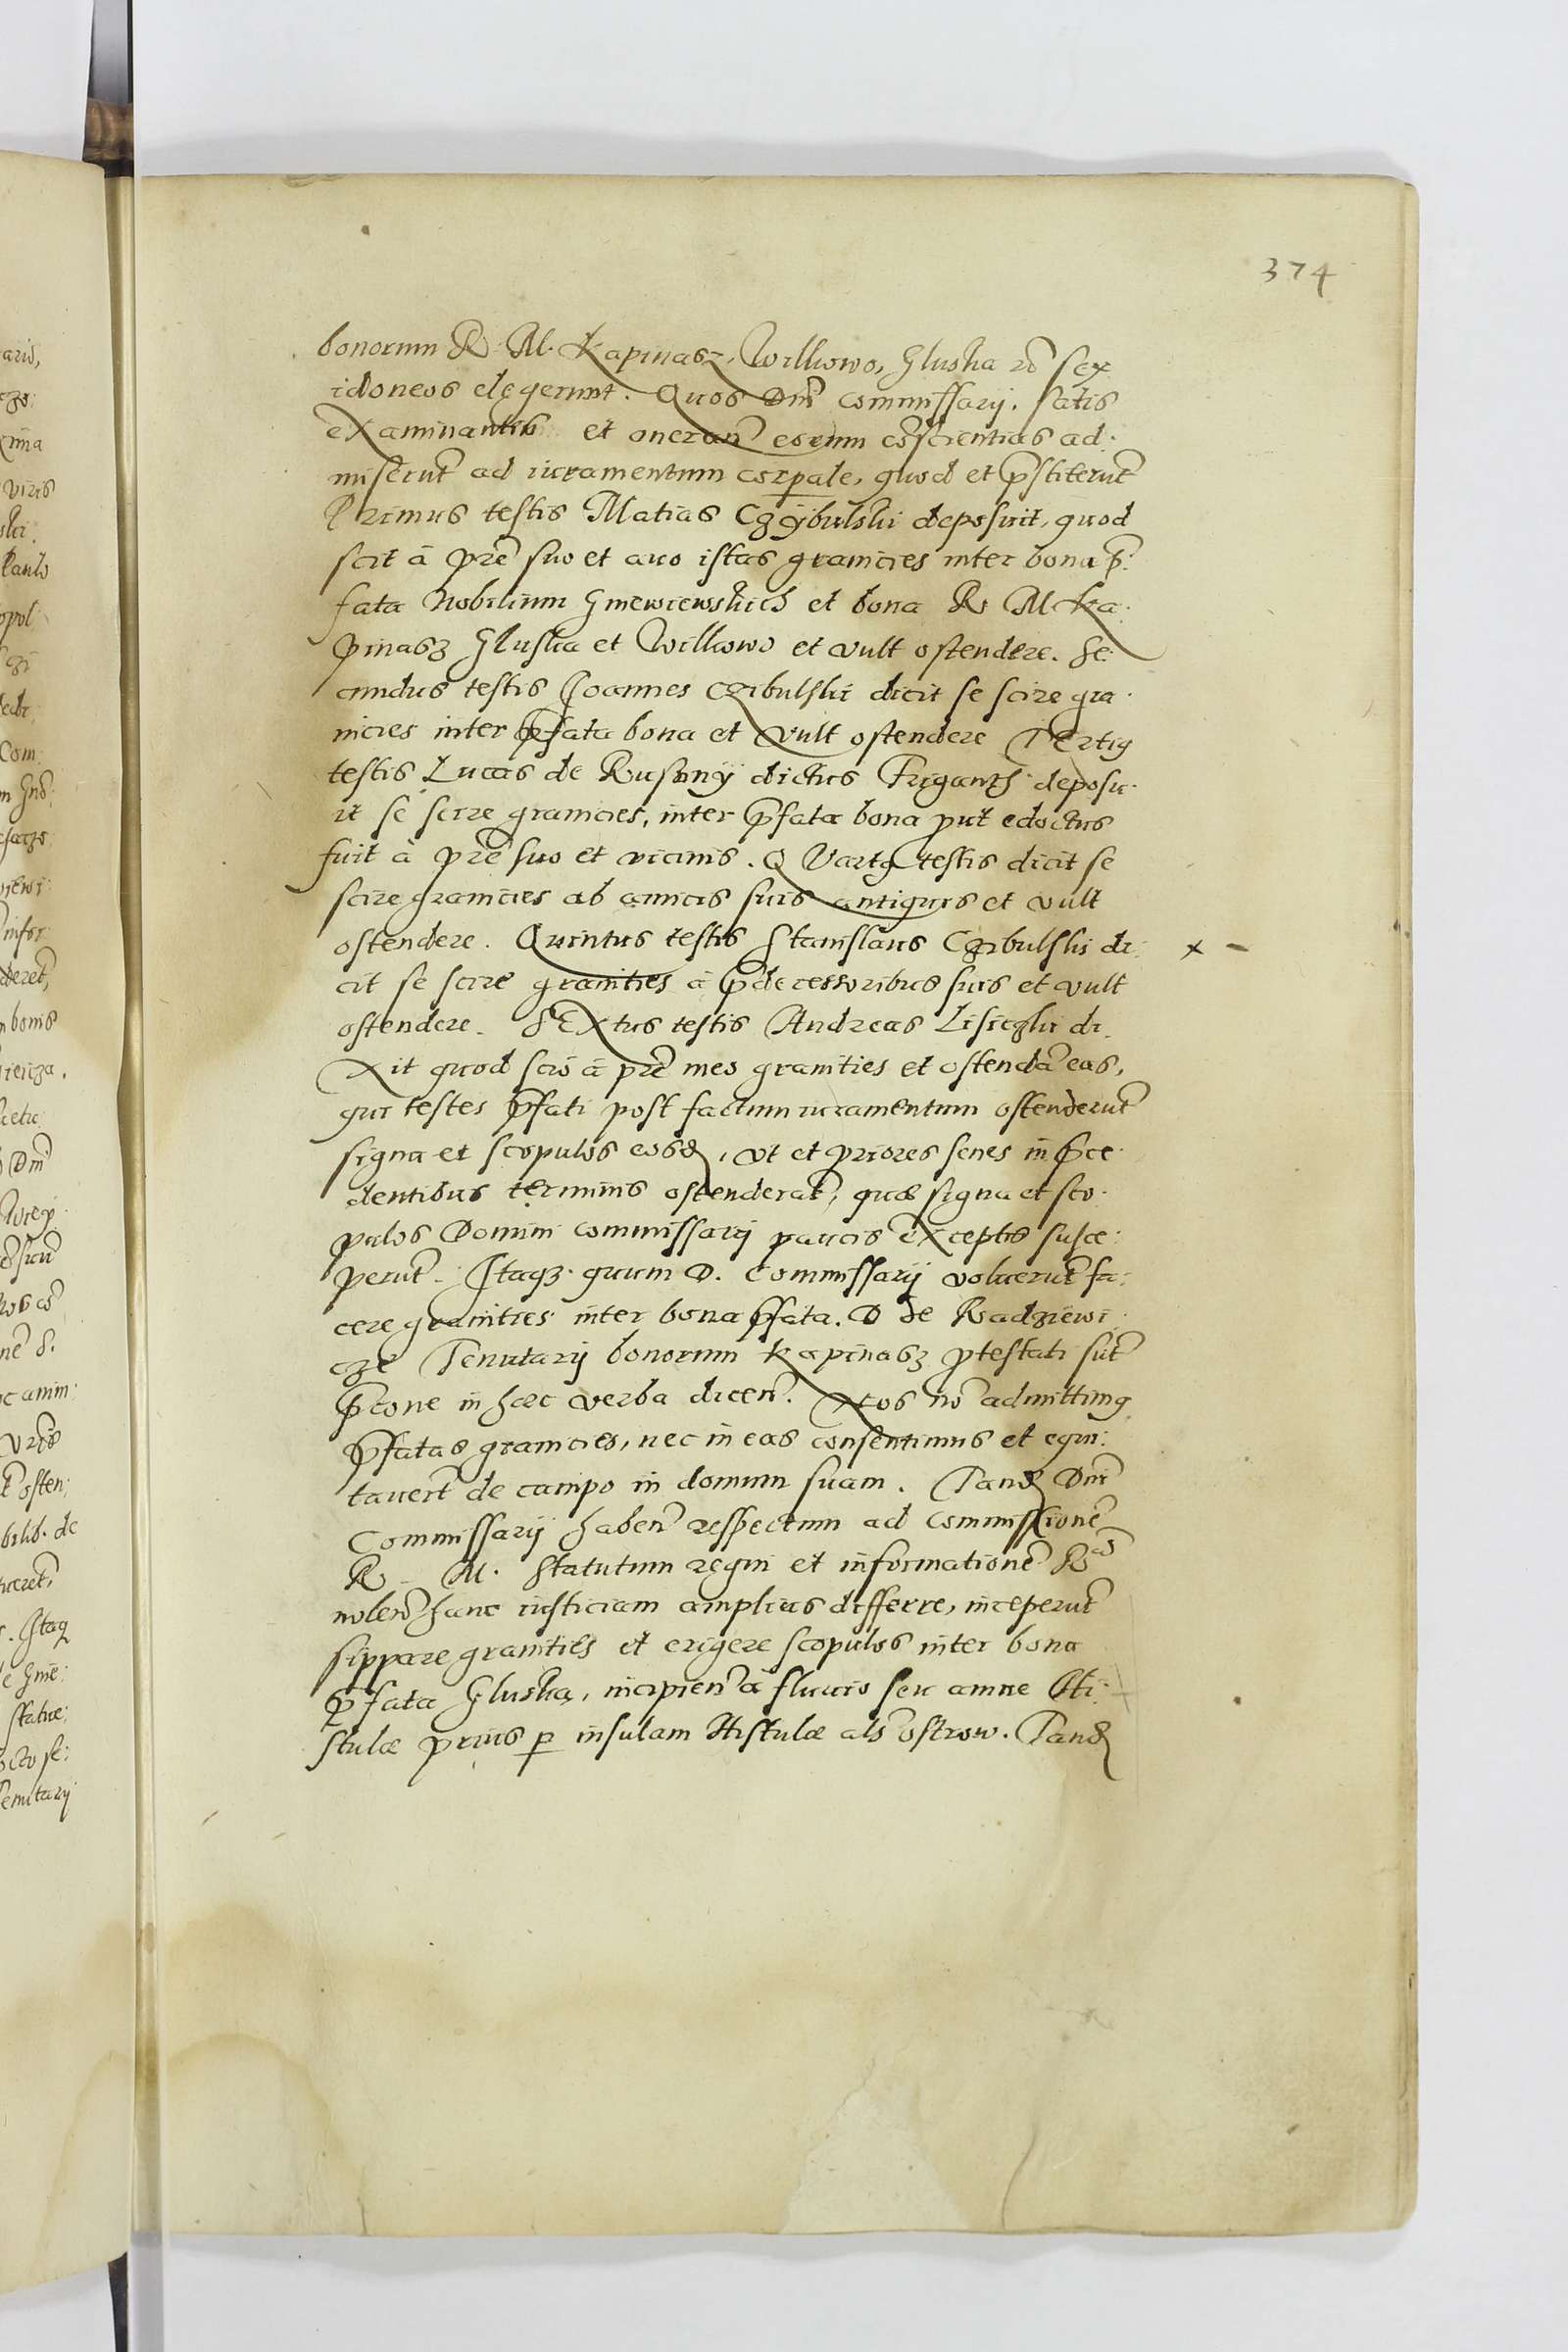 374
bonorum R. M. Kapinasz, Wilkowo, Gluska
idoneos elegerunt. Quos Dni commissarij. satis
examinantib et oneran eorum coscientias ad:
miserut ad iuramentum corpale, quod et pstiterut
Primus testis Matias Czÿbulski deposuit, quod
scit à pre suo et auo istas granicies inter bona p:
fata Nobilium Gniewiewskich et bona R. M. Ka:
pinasz Gluska et Wilkowo et vult ostendere. Se:
cundus testis Joannes Czibulski dicit se scire gra:
nicies inter pfata bona et vult ostendere Tertiq
testis Lucas de Ruskinÿ dictus deposu:
it se scire granicies, inter pfata bona put edoctus
fuit à pre suo et vicinis. Quartq testis dicit se
scire granicies ab amicis suis antiquis et vult
ostendere. Quintus testis Stanislaus Czibulski di: x -
cit se scire granities à pdecessoribus suis et vult
ostendere. Sextus testis Andreas Lisiczki di:
xit quod scio à pre meo granities et ostenda eas,
qui testes pfati post factum iuramentum ostenderut
signa et scopulos eosd, vt et priores senes in pce:
dentibus terminis ostenderat, quæ signa et sco:
pulos Domini commissarij paucis exceptis susce:
perut. Itaqz quum D. Commissarij voluerut fa:
cere granities inter bona pfata. D de Radziewi:
cze Tenutarij bonorum Kapinasz ptestati sut
pcone in hæc verba dicen. Nos no admittimq
pfatas granicies, nec in eas consentimus et equi:
tauert de campo in domum suam. Tand Dni
Commissarij haben respectum ad commissione
R. M. Statutum regni et informatione
nolen hanc iusticiam amplius differre, inceperut
sippare granities et erigere scopulos inter bona
pfata Gluska, incipien à fluuio seu amne Hi:
stulæ prius p insulam Histulæ als ostrow. Tand